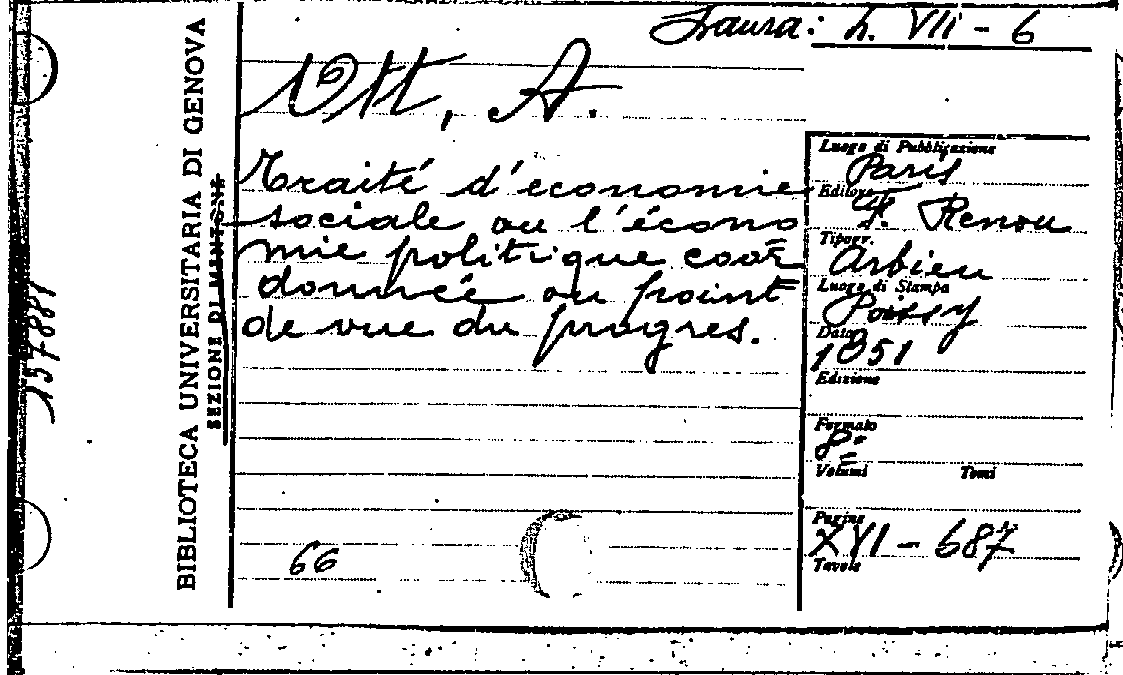 Laura: h. VII - 6
Ott, A.
Traité d'économie
sociale ou l'écono
mie politique coor
donnée au point
de vue du progres.
66
BIBLIOTECA UNIVERSITARIA DI GENOVA
SEZIONE DI MANZONE
157881
Luogo di Pubblicazione
Paris
Editore
Renou
Tipogr.
Arbieu
Luogo di Stampa
Poissy
Data
1851
Edizione
Formato
8º
Volumi Tomi
Pagine
XVI - 687
Tavole